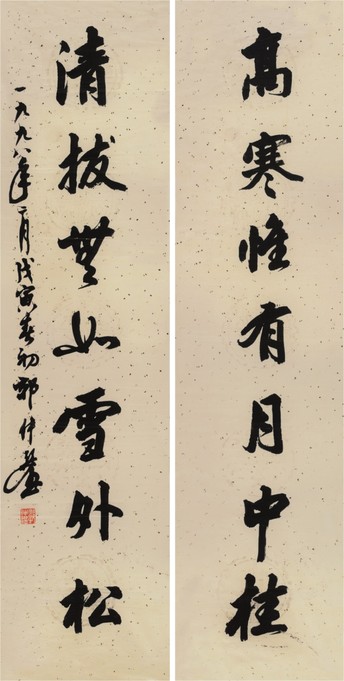 高寒惟有月中桂
清拔無如雪外松
一九九八年二月戊寅春初鄭仲